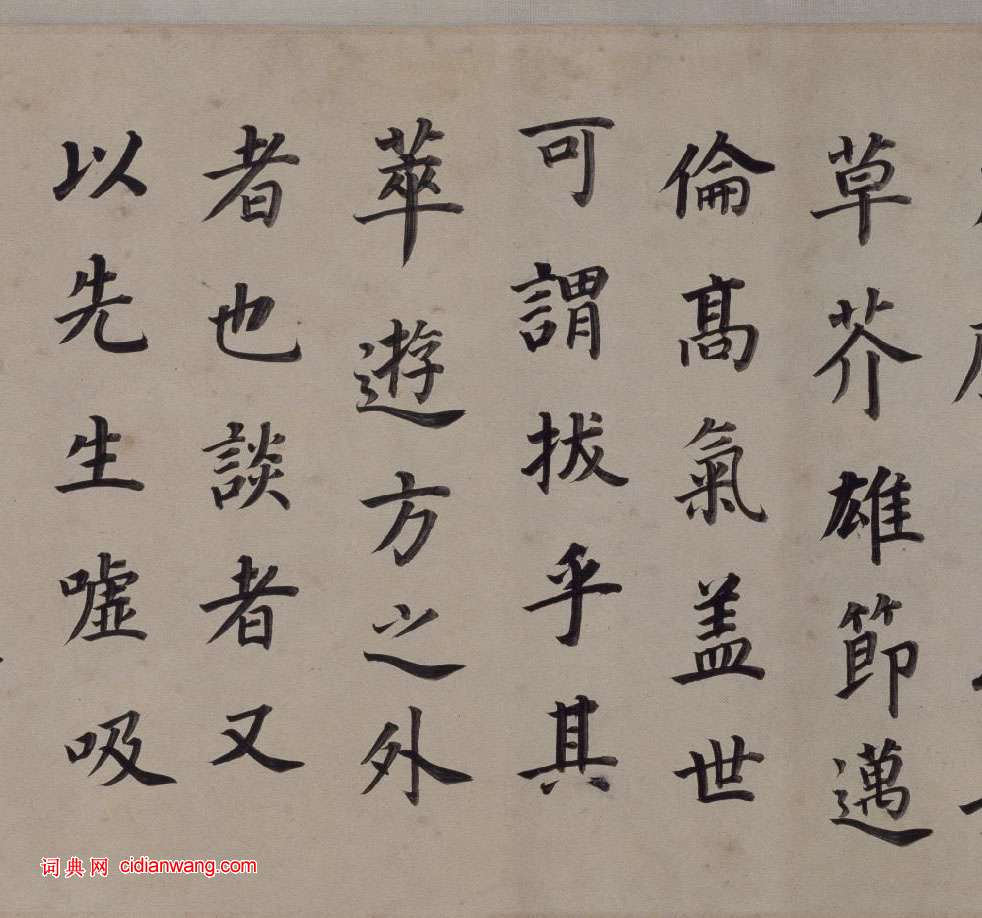 草芥雄節邁
倫高氣盖世
可謂拔乎其
萃遊方之外
者也談者又
以先生噓吸
词典网 cidianwang.com